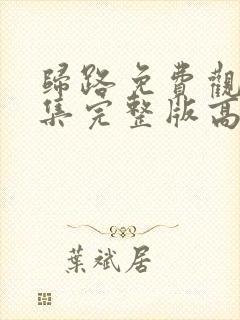 歸路免費觀
集完整版高
葉斌居